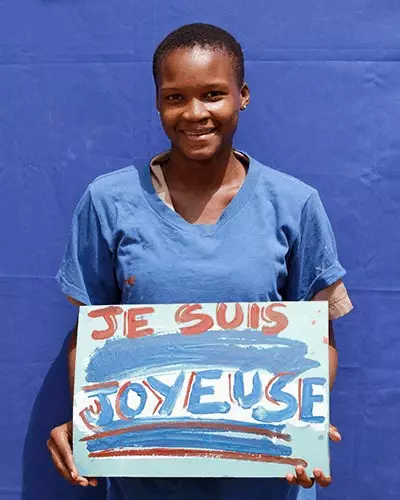 JE SUIS
JOYEUSE